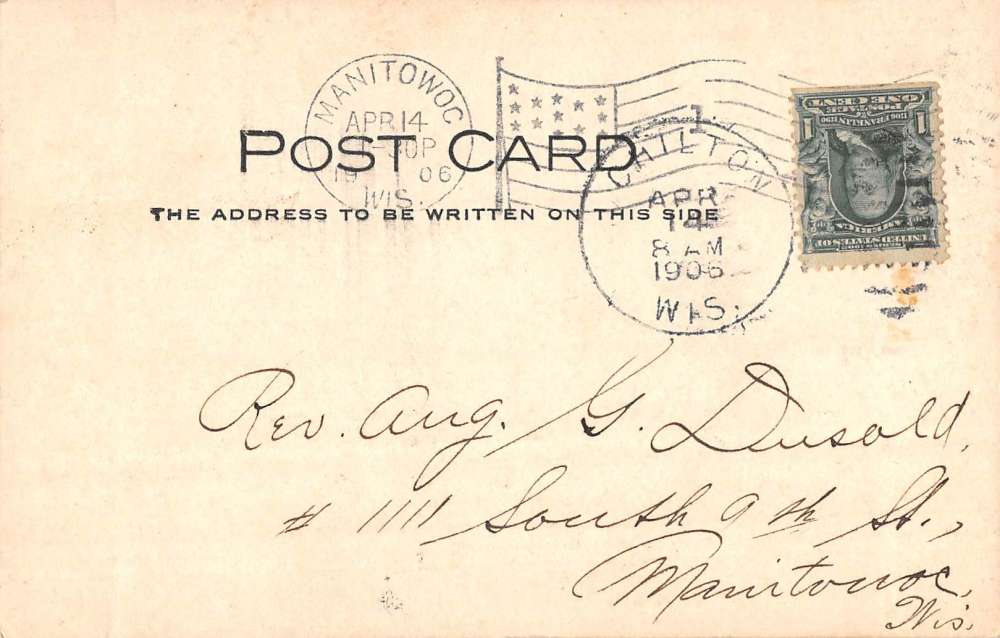 MANITOWOC
APR 14
0P
19 06
WIS.
POST CARD
THE ADDRESS TO BE WRITTEN ON THIS SIDE
1
CHILTON
APR
14
8 AM
1906
WIS.
ONE CENT
POSTAGE
1706 FRANKLIN 1790
1 1
AMERICA
UNITED STATES OF
SERIES 1902
Rev. Aug. G. Dusold,
# 1111 South 9th St.,
Manitowoc,
Wis.